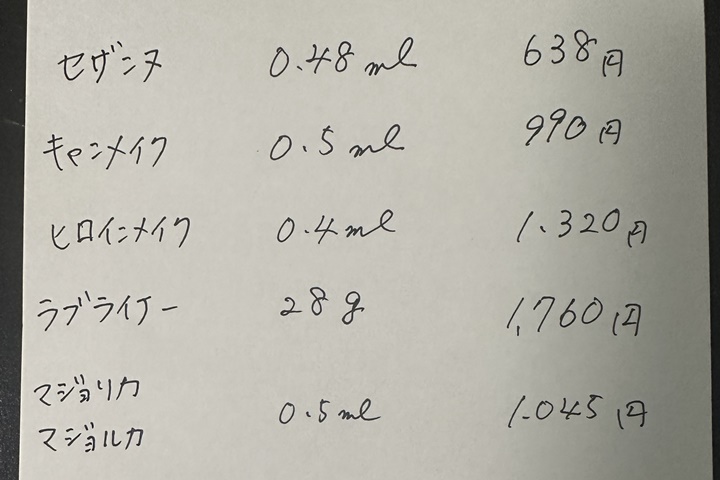 セザンヌ 0.48ml 638円
キャンメイク 0.5ml 990円
ヒロインメイク 0.4ml 1.320円
ラブライナー 28g 1,760円
マジョリカ
マジョルカ 0.5ml 1.045円